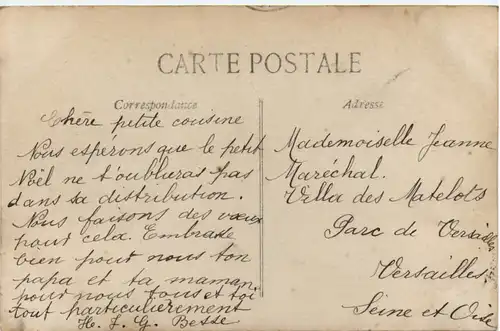 CARTE POSTALE
Correspondance
Chère petite cousine
Nous espérons que le petit
Noël ne t'oubluras pas
dans sa distribution.
Nous faisons des vœux
pour cela. Embrasse
bien pour nous ton
papa et ta maman,
pour nous tous et toi
tout particulièrement
H. J. G. Besse
Adresse
Mademoiselle Jeanne
Maréchal.
Villa des Matelots
Parc de Versailles
Versailles
Seine et Oise